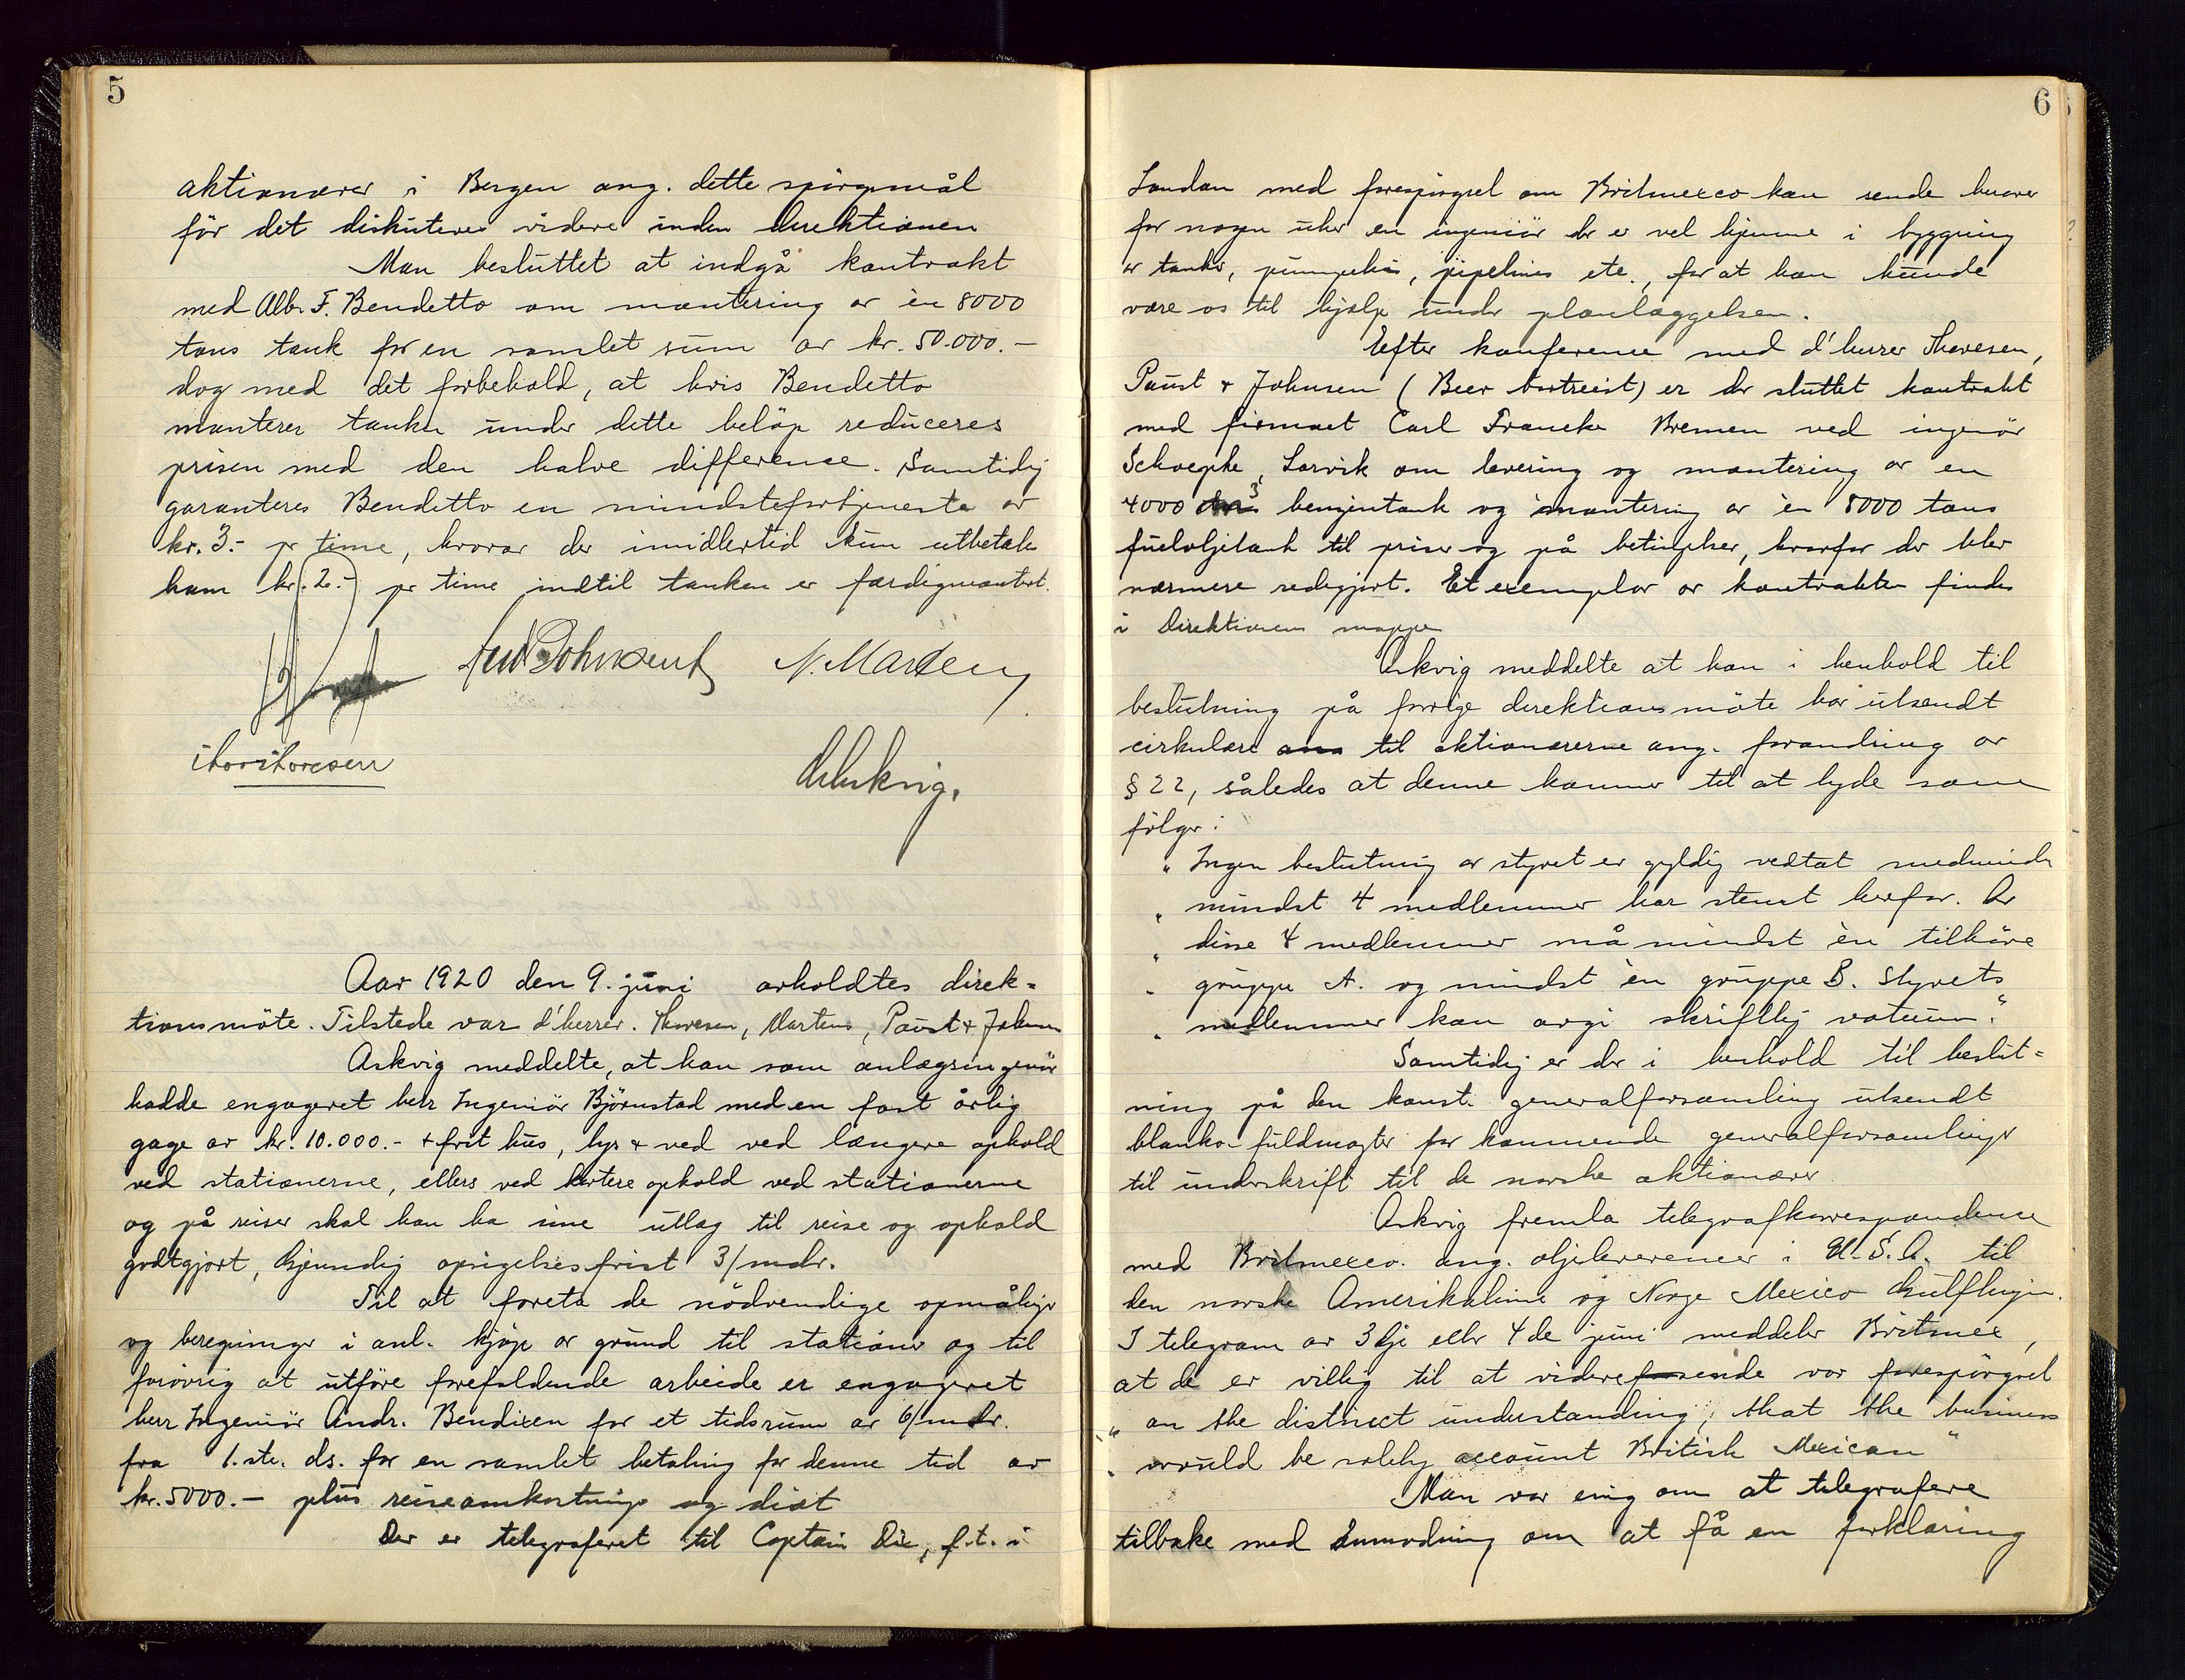 5
aktionærer i Bergen ang. dette spörgsmål
för det diskuteres videre inden direktionen
Man besluttet at indgå kontrakt
med Alb. F. Bendetto om montering av èn 8000
tons tank for en samlet sum av kr. 50.000.-
dog med det forbehold, at hvis Bendetto
monterer tanken under dette belöp reduceres
prisen med den halve difference. Samtidig
garanteres Bendetto en mindstefortjeneste av
kr. 3.- pr time, hvorav der imidlertid kun utbetales
ham kr. 2.- pr time indtil tanken er færdigmontert.
N. Martens
Thor Thoresen
Askvig.
Aar 1920 den 9. juni avholdtes direk=
tionsmöte. Tilstede var d'herrer. Thoresen, Martens, Paust & Johnsen
Askvig meddelte, at han som anlægsingeniör
hadde engageret herr Ingeniör Björnstad med en fast årlig
gage av kr. 10.000.- + frit hus, lys & ved ved længere ophold
ved stationerne, ellers ved kortere ophold ved stationerne
og på reiser skal han ha sine utlæg til reise og ophold
godtgjort, Gjensidig opsigelsesfrist 3/mdr.
Til at foreta de nödvendige opmålinger
og beregninger i anl. kjöp av grund til stationer og til
forövrig at utföre forefaldende arbeide er engageret
herr Ingeniör Andr. Bendixen for et tidsrum av 6/mdr.
fra 1.ste. ds. for en samlet betaling for denne tid av
kr. 5000.- plus reiseomkostninger og diæt
Der er telegraferet til Captain Dix, f.t. i
6
London med forespörgsel om Britmexco kan sende herover
for nogen uker en ingeniör der er vel hjemme i bygging
av tanker, pumpehus, pipelines etc., for at han kunde
være os til hjælp under planlæggelsen.
Efter konference med d'herrer Thoresen,
Paust & Johnsen (Beer bortreist) er der sluttet kontrakt
med firmaet Carl Francke Bremen ved ingeniör
Schoepke, Larvik om levering og montering av en
4000 m3 benzintank og montering av èn 8000 tons
fueloljetank til priser og på betingelser, hvorfor der blev
nærmere redegjort. Et exemplar av kontrakten findes
i Direktionens mappe
Askvig meddelte at han i henhold til
beslutning på forrige direktionsmöte har utsendt
cirkulære til aktionærerne ang. forandring av
§ 22, således at denne kommer til at lyde som
fölger:
" Ingen beslutning av styret er gyldig vedtat medmindre
" mindst 4 medlemmer har stemt herfor. Av
" disse 4 medlemmer må mindst èn tilhöre
" gruppe A. og mindst èn gruppe B. Styrets
" medlemmer kan avgi skriftlig votum."
Samtidig er der i henhold til beslut=
ning på den konst. generalforsamling utsendt
blanko-fuldmagter for kommende generalforsamlinger
til underskrift til de norske aktionærer
Askvig fremla telegrafkorrespondence
med Britmexco. ang. oljeleverencer i U.S.A. til
den norske Amerikalinie og Norge Mexico Gulflinjen.
I telegram av 3dje eller 4de juni meddeler Britmex,
at de er villig til at videresende vor forespörgsel
" on the distinct understanding, that the business
" would be solely account British Mexican"
Man var enig om at telegrafere
tilbake med anmodning om at få en forklaring